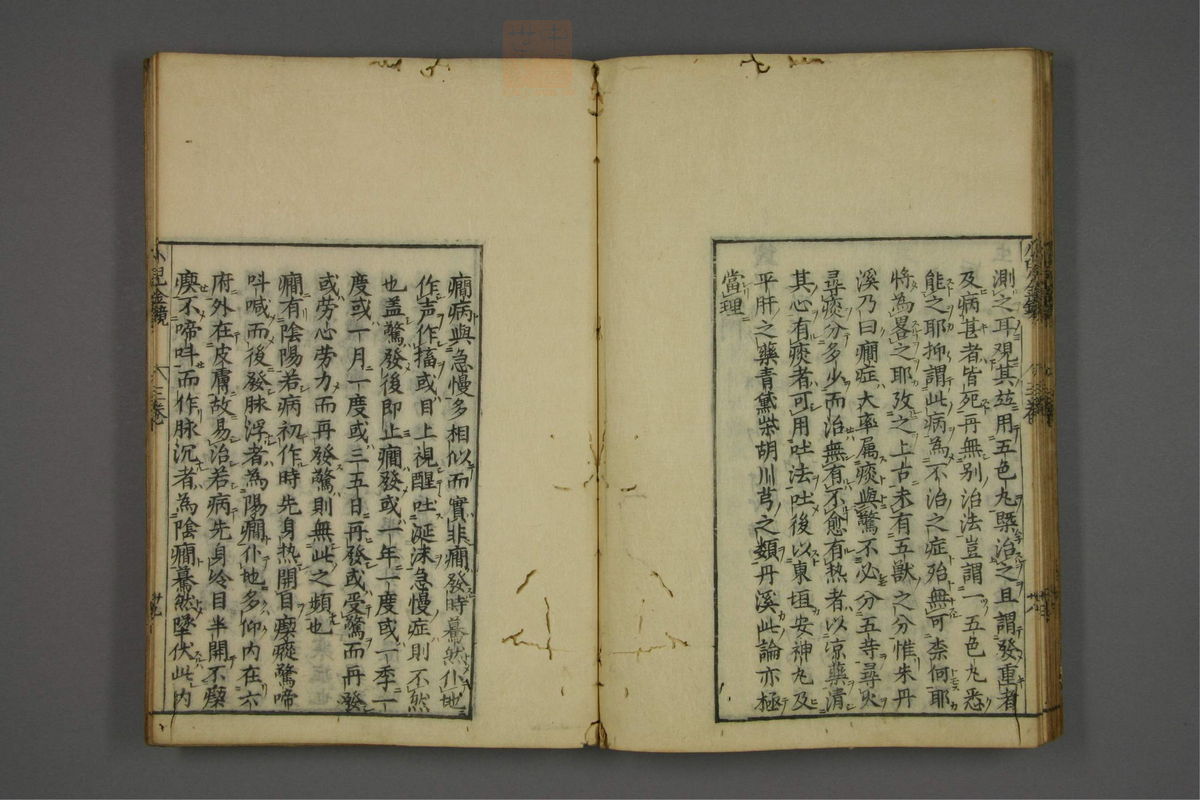 測之耳觀其玆用五色丸槩治之且謂發重者
及病甚者皆死再無别治法豈謂一五色丸悉
能之耶抑謂此病為不治之症殆無可柰何耶
將為畧之耶攷之上古未有五獸之分惟朱丹
溪乃曰癎症大率属痰與驚不必分五寺尋火
尋痰分多少而治無有不愈有热者以凉藥清
其心有痰者可用吐法吐後以東垣安神丸及
平肝之藥青黛柴胡川芎之類丹溪此論亦極
當理
癎病與急慢多相似而實非癎發時驀然仆地
作声作搐或目上視醒吐涎沫急慢症則不然
也盖驚發後即止癎發或一年一度或一季一
度或一月一度或三五日再發或受驚而再發
或劳心劳力而再發驚則無此之頻也
癎有陰陽若病初作時先身热開目瘈瘲驚啼
呌喊而後發脉浮者為陽癎仆地多仰内在六
府外在皮膚故易治若病先身冷目半開不瘈
瘲不啼呌而作脉沉者為陰癎驀然墜伏此内
小兒金鏡
三卷